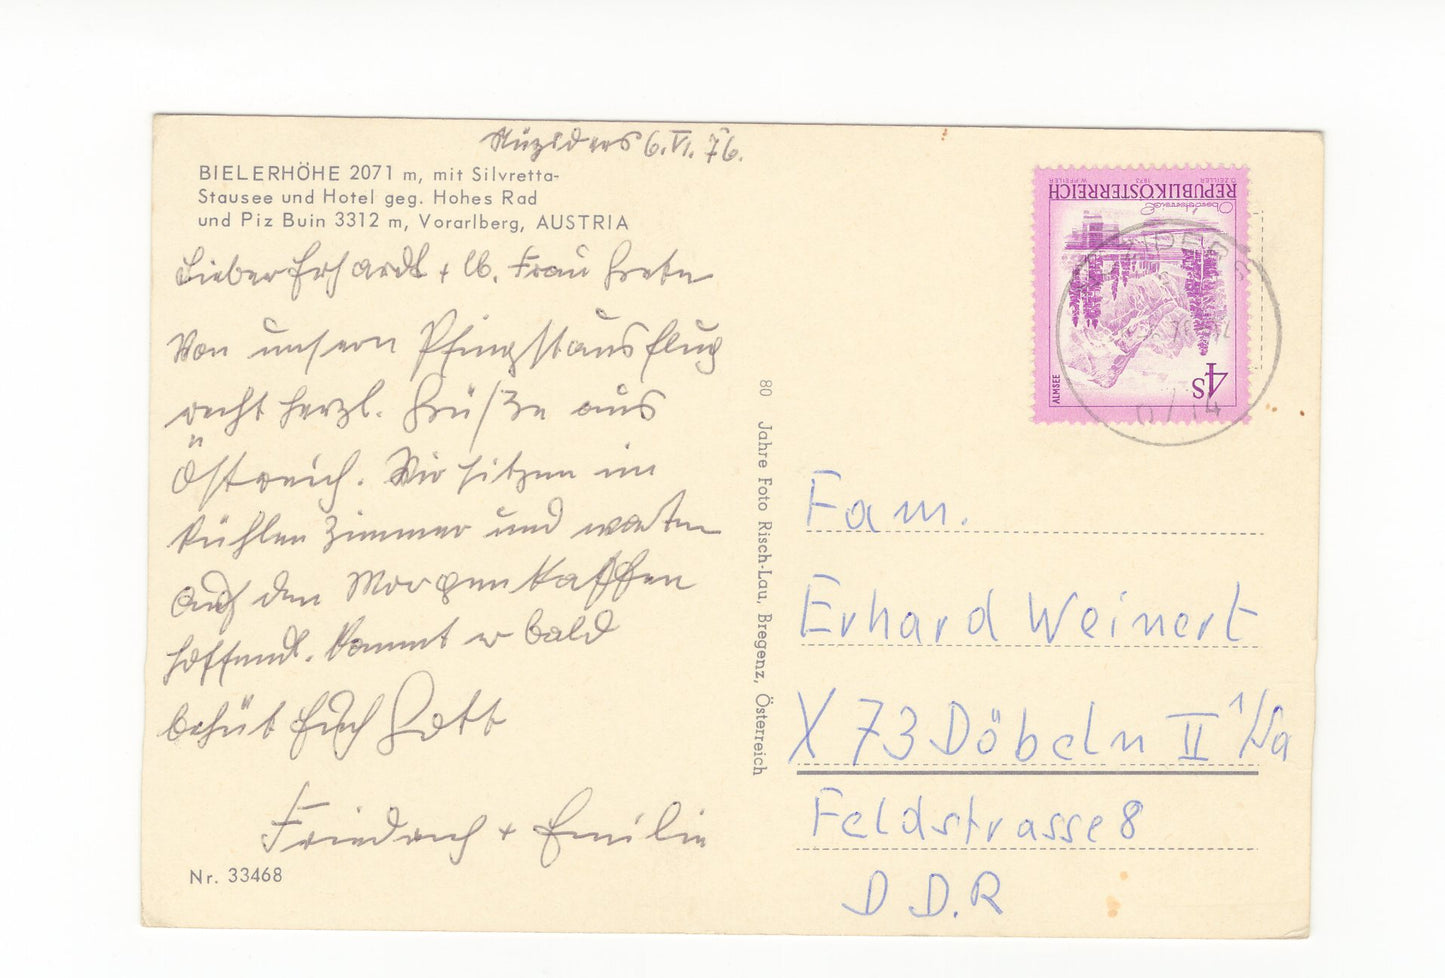 Nüziders 6.VI.76.
BIELERHÖHE 2071 m, mit Silvretta-
Stausee und Hotel geg. Hohes Rad
und Piz Buin 3312 m, Vorarlberg, AUSTRIA
Lieber Erhardt + lb. Frau Grete
Von unsern Pfingstausflug
recht herzl. Grüße aus
Östreich. Wir sitzen im
kühlen Zimmer und warten
auf den Morgenkaffen
hoffendl. kommt er bald
behüt Euch Gott
Friedrich + Emilie
Nr. 33468
80 Jahre Foto Risch-Lau, Bregenz, Österreich
REPUBLIK ÖSTERREICH
O. ZEILLER 1973 W. PFEILER
Oberösterreich
ALMSEE
4S
6714
Fam.
Erhard Weinert
X 73 Döbeln II
Feldstrasse 8
D D.R